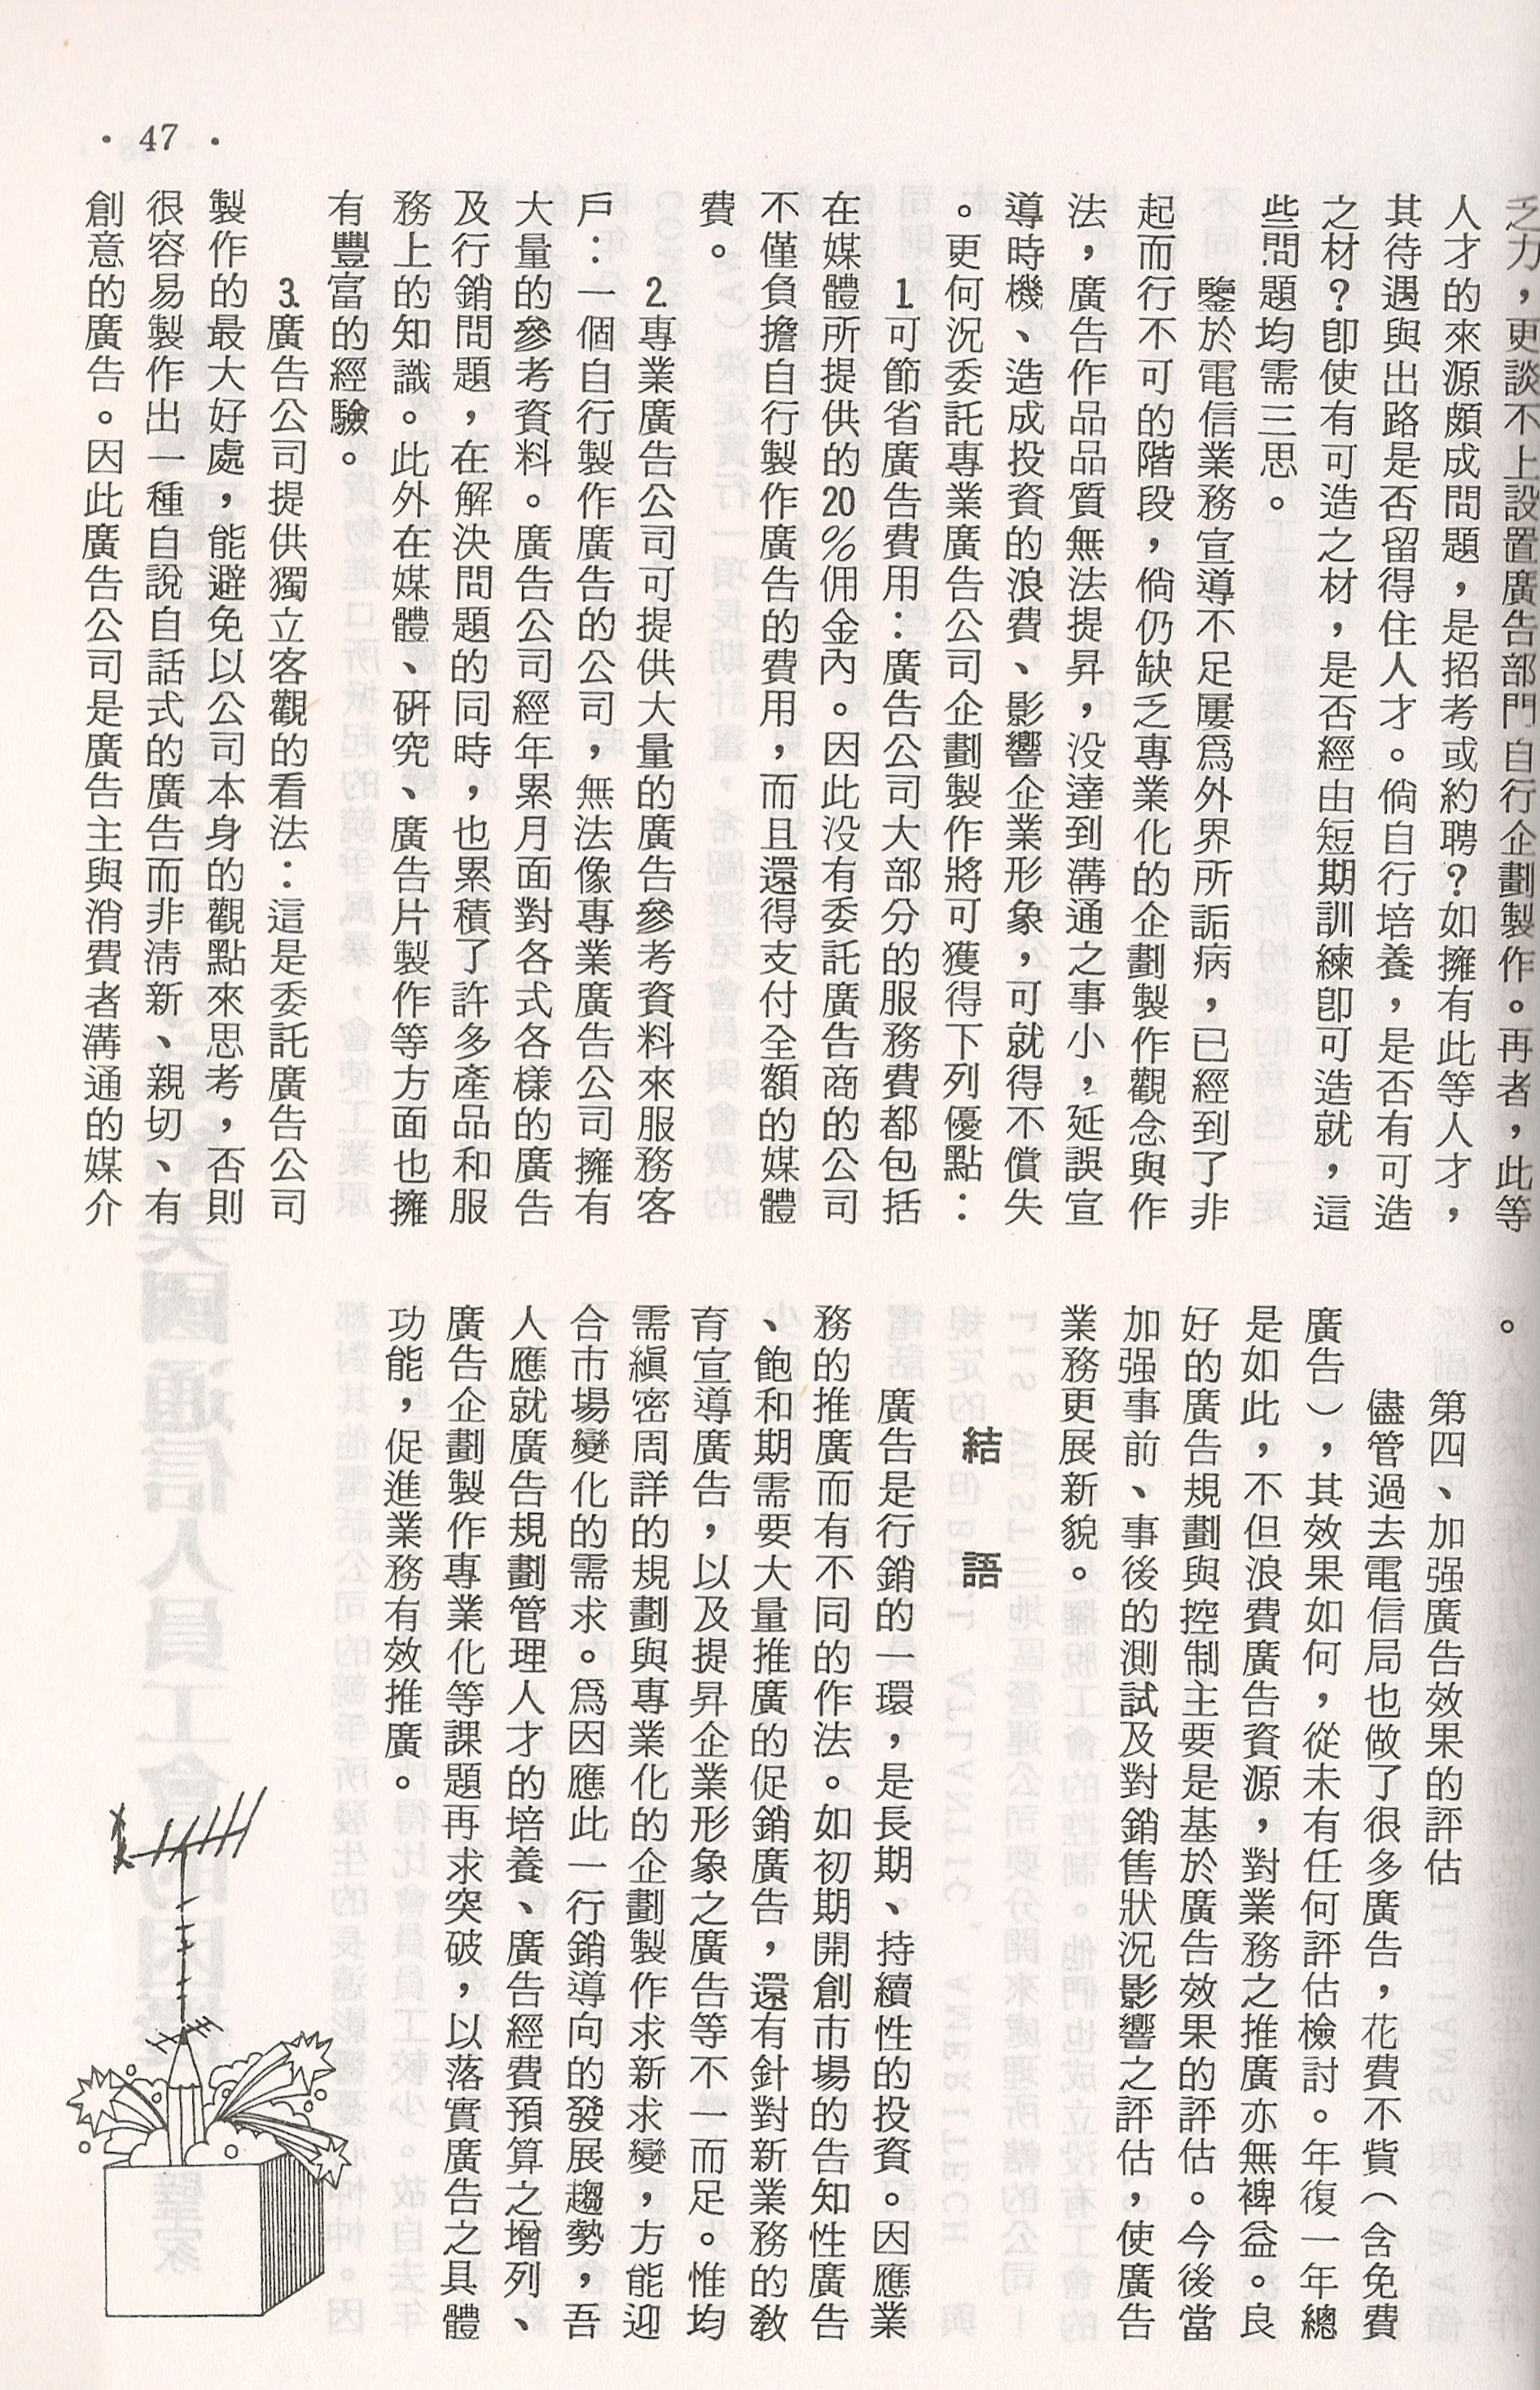 • 47 •
之力，更談不上設置廣告部門自行企劃製作。再者，此等
人才的來源頗成問題，是招考或約聘？如擁有此等人才，
其待遇與出路是否留得住人才。倘自行培養，是否有可造
之材？卽使有可造之材，是否經由短期訓練卽可造就，這
些問題均需三思。
鑒於電信業務宣導不足屢爲外界所詬病，已經到了非
起而行不可的階段，倘仍缺乏專業化的企劃製作觀念與作
法，廣告作品品質無法提昇，没達到溝通之事小，延誤宣
導時機、造成投資的浪費、影響企業形象，可就得不償失
。更何況委託專業廣告公司企劃製作將可獲得下列優點：
1.可節省廣告費用：廣告公司大部分的服務費都包括
在媒體所提供的20%佣金內。因此没有委託廣告商的公司
不僅負擔自行製作廣告的費用，而且還得支付全額的媒體
費。
2.專業廣告公司可提供大量的廣告參考資料來服務客
戶：一個自行製作廣告的公司，無法像專業廣告公司擁有
大量的參考資料。廣告公司經年累月面對各式各樣的廣告
及行銷問題，在解決問題的同時，也累積了許多產品和服
務上的知識。此外在媒體、硏究、廣告片製作等方面也擁
有豐富的經驗。
3.廣告公司提供獨立客觀的看法：這是委託廣告公司
製作的最大好處，能避免以公司本身的觀點來思考，否則
很容易製作出一種自說自話式的廣告而非淸新、親切、有
創意的廣告。因此廣告公司是廣告主與消費者溝通的媒介
。
第四、加强廣告效果的評估
儘管過去電信局也做了很多廣告，花費不貲（含免費
廣告），其效果如何，從未有任何評估檢討。年復一年總
是如此，不但浪費廣告資源，對業務之推廣亦無裨益。良
好的廣告規劃與控制主要是基於廣告效果的評估。今後當
加强事前、事後的測試及對銷售狀況影響之評估，使廣告
業務更展新貌。
結語
廣告是行銷的一環，是長期、持續性的投資。因應業
務的推廣而有不同的作法。如初期開創市場的告知性廣告
、飽和期需要大量推廣的促銷廣告，還有針對新業務的敎
育宣導廣告，以及提昇企業形象之廣告等不一而足。惟均
需縝密周詳的規劃與專業化的企劃製作求新求變，方能迎
合市場變化的需求。爲因應此一行銷導向的發展趨勢，吾
人應就廣告規劃管理人才的培養、廣告經費預算之增列、
廣告企劃製作專業化等課題再求突破，以落實廣告之具體
功能，促進業務有效推廣。